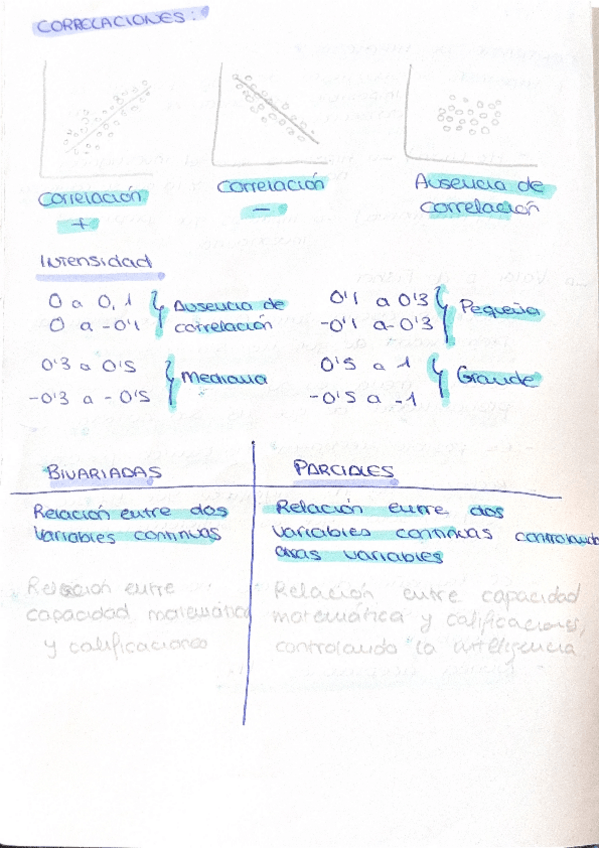 CORRELACIONES:
Correlación
+
Correlación
-
Ausencia de
correlación
Intensidad
0 a 0,1
0 a -0'1
Ausencia de
correlación
0'1 a 0'3
-0'1 a -0'3
Pequeña
0'3 a 0'5
-0'3 a -0'5
Mediana
0'5 a 1
-0'5 a -1
Grande
BIVARIADAS
Relación entre dos
variables continuas
Relación entre
capacidad matemática
y calificaciones
PARCIALES
Relación entre dos
variables continuas controlando
otras variables
Relación entre capacidad
matemática y calificaciones,
controlando la inteligencia